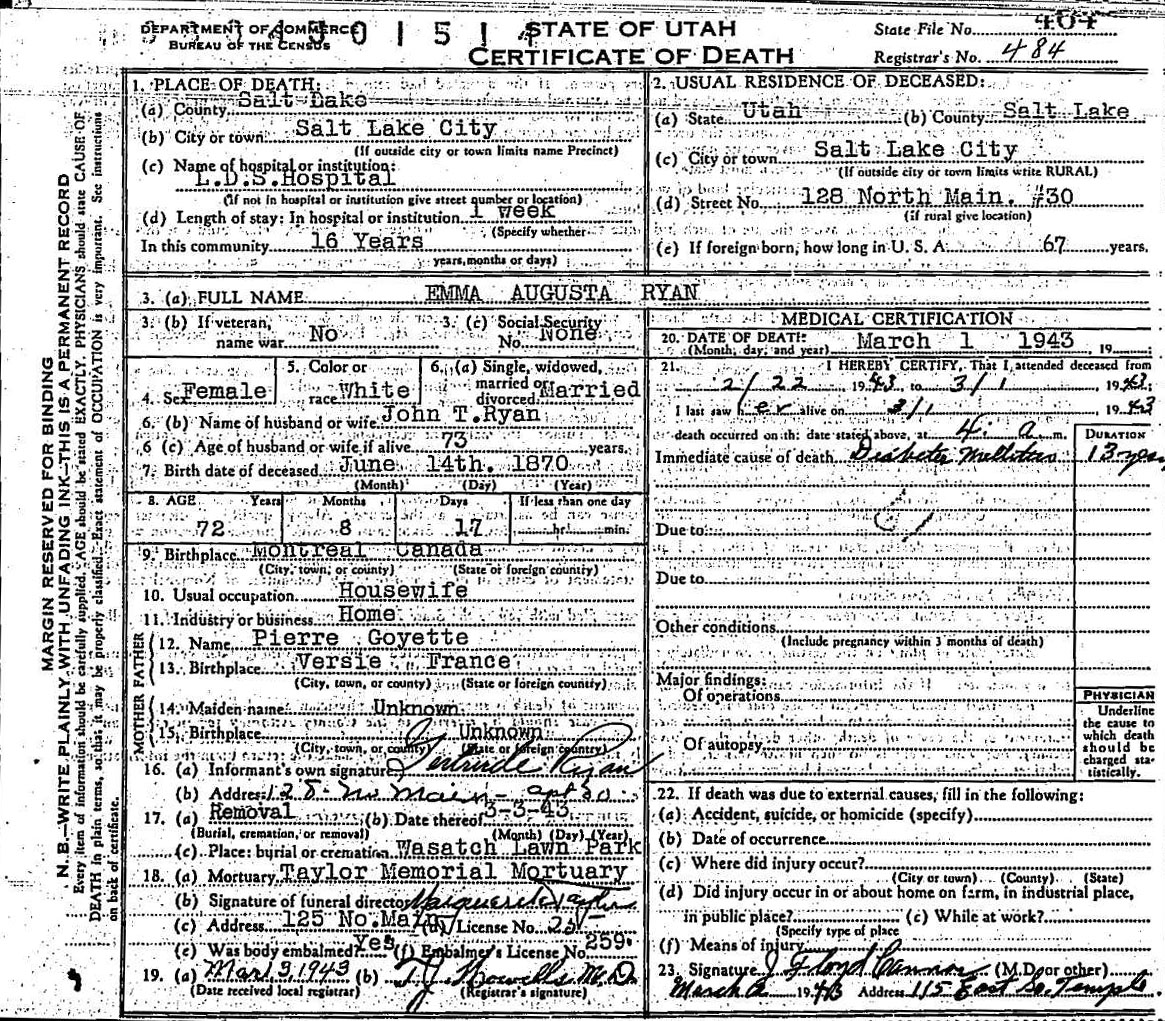 DEPARTMENT OF COMMERCE
BUREAU OF THE CENSUS
STATE OF UTAH
CERTIFICATE OF DEATH
State File No. 404
Registrar's No. 484
MARGIN RESERVED FOR BINDING
N. B.—WRITE PLAINLY, WITH UNFADING INK—THIS IS A PERMANENT RECORD
Every item of information should be carefully supplied. AGE should be stated EXACTLY. PHYSICIANS should state CAUSE OF
DEATH in plain terms, so that it may be properly classified. Exact statement of OCCUPATION is very important. See instructions
on back of certificate.
1. PLACE OF DEATH:
(a) County Salt Lake
(b) City or town Salt Lake City
(If outside city or town limits name Precinct)
(c) Name of hospital or institution:
L.D.S.Hospital
(If not in hospital or institution give street number or location)
(d) Length of stay: In hospital or institution 1 week
(Specify whether
In this community 16 Years
years, months or days)
2. USUAL RESIDENCE OF DECEASED:
(a) State Utah (b) County Salt Lake
(c) City or town Salt Lake City
(If outside city or town limits write RURAL)
(d) Street No. 128 North Main. #30
(if rural give location)
(e) If foreign born, how long in U. S. A. 67 years.
3. (a) FULL NAME EMMA AUGUSTA RYAN
3. (b) If veteran, name war No
3. (c) Social Security No. None
4. Sex Female
5. Color or race White
6. (a) Single, widowed, married or divorced Married
6. (b) Name of husband or wife John T.Ryan
6 (c) Age of husband or wife if alive 73 years.
7. Birth date of deceased June 14th. 1870
(Month) (Day) (Year)
8. AGE Years Months Days If less than one day
72 8 17 hr. min.
9. Birthplace Montreal Canada
(City, town, or county) (State or foreign country)
10. Usual occupation Housewife
11. Industry or business Home
FATHER
12. Name Pierre Goyette
13. Birthplace Versie France
(City, town, or county) (State or foreign country)
MOTHER
14. Maiden name Unknown
15. Birthplace Unknown
(City, town, or county) (State or foreign country)
16. (a) Informant's own signature Gertrude Ryan
(b) Address 128 - No Main - apt 30
17. (a) Removal (b) Date thereof 3-3-43
(Burial, cremation, or removal) (Month) (Day) (Year)
(c) Place: burial or cremation Wasatch Lawn Park
18. (a) Mortuary Taylor Memorial Mortuary
(b) Signature of funeral director Marguerite Taylor
(c) Address 125 No.Main (d) License No. 25
(e) Was body embalmed? Yes (f) Embalmer's License No. 259
19. (a) Mar 3 1943 (b) T J Howells M.D.
(Date received local registrar) (Registrar's signature)
MEDICAL CERTIFICATION
20. DATE OF DEATH: March 1 1943, 19
(Month, day, and year)
21. I HEREBY CERTIFY, That I attended deceased from
2/22 1943, to 3/1 1943
I last saw her alive on 3/1 1943
death occurred on the date stated above, at 4: a m.
DURATION
Immediate cause of death Diabetes Mellitus 13 yrs
61
Due to
Due to
Other conditions
(Include pregnancy within 3 months of death)
Major findings:
Of operations
Of autopsy
PHYSICIAN
Underline
the cause to
which death
should be
charged sta-
tistically.
22. If death was due to external causes, fill in the following:
(a) Accident, suicide, or homicide (specify)
(b) Date of occurrence
(c) Where did injury occur?
(City or town) (County) (State)
(d) Did injury occur in or about home on farm, in industrial place,
in public place? (e) While at work?
(Specify type of place
(f) Means of injury
23. Signature J Floyd Cannon (M. D or other)
March 2 1943 Address 115 East So. Temple